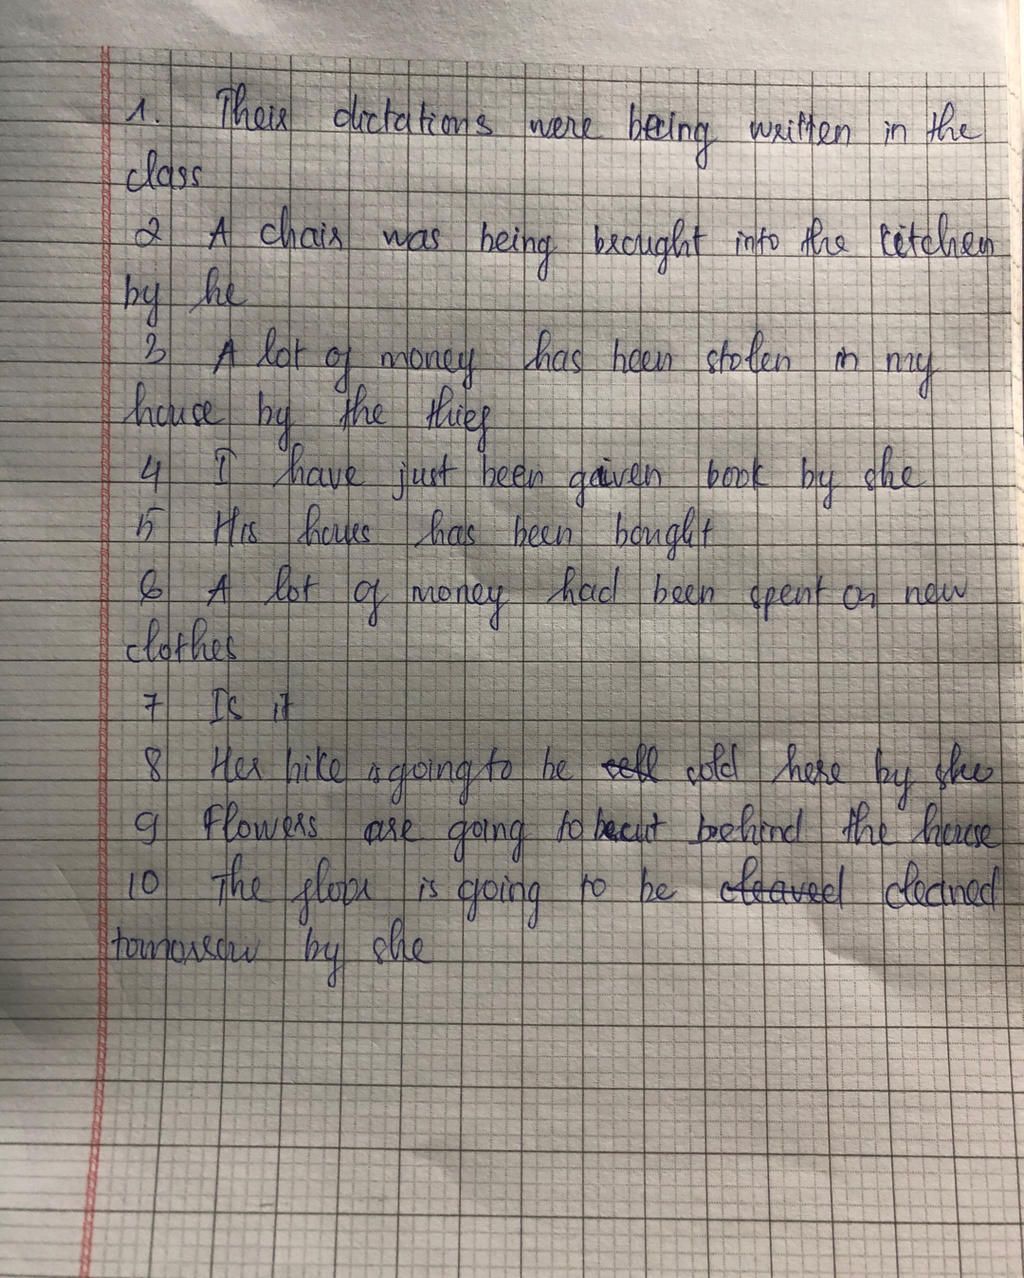 1. Their dictations were being written in the
class
2 A chair was being brought into the kitchen
by he
3 A lot of money has been stolen in my
house by the thief
4 I have just been given book by she
5 His houes has been bought
6 A lot of money had been spent on new
clothes
7 Is it
8 Her bike is going to be sell sold here by she
9 Flowers are going to be cut behind the house
10 The floor is going to be cleaved cleaned
tomorrow by she